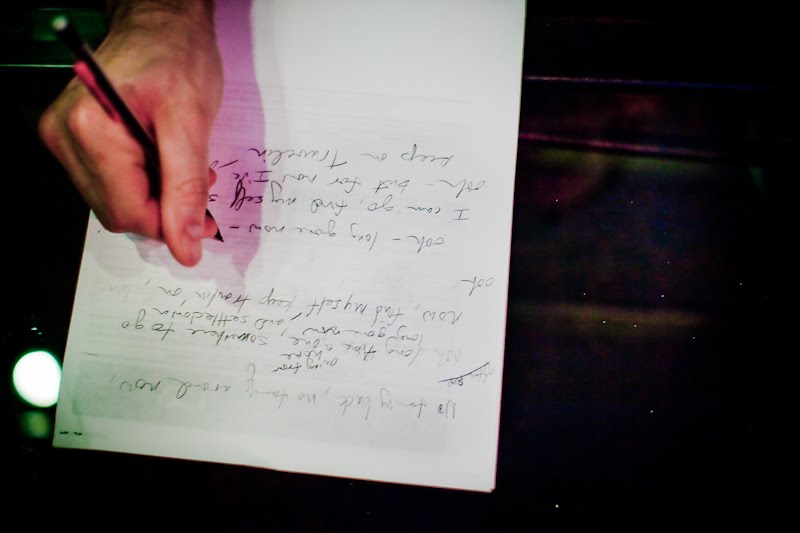 1) family back, no family around now,
away from
home
ooh long time alone, somewhere to go
long gone now, and settle down
now, find myself keep trav'lin' on,
ooh
ooh - long gone now -
I can go, find myself s
ooh - but for now I've
keep on travelin